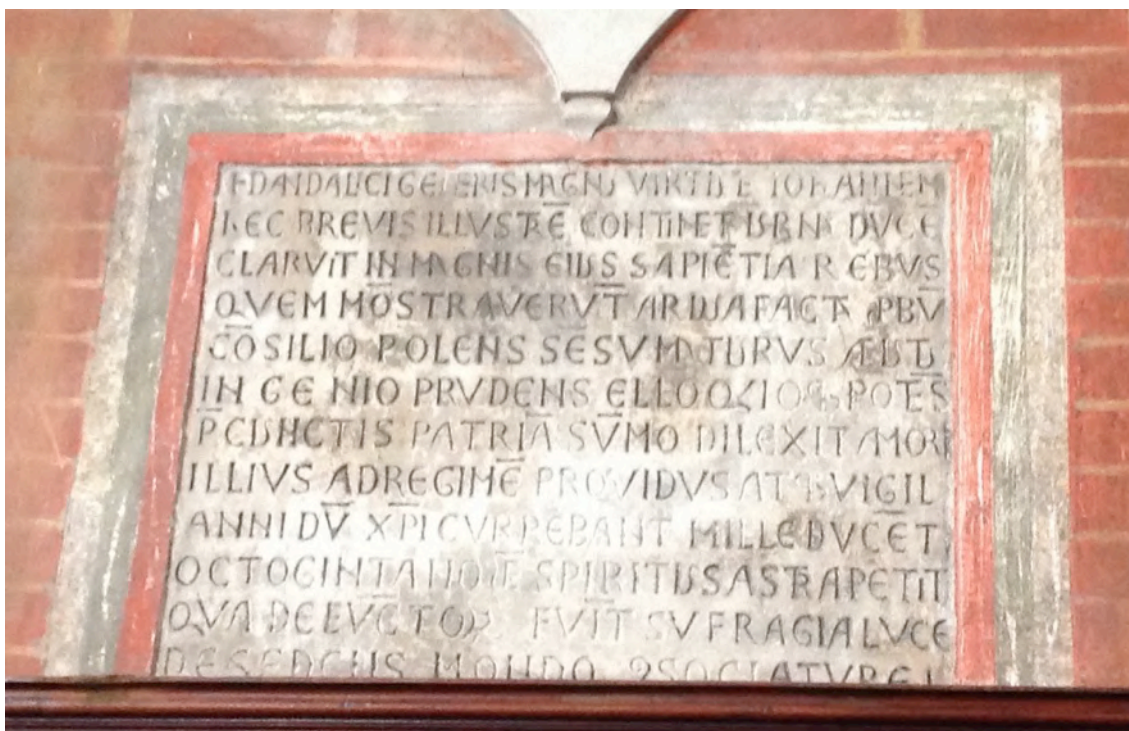 DANDALICI GENERIS MAGNI VIRTVTE IOHANNEM
HEC BREVIS ILLVSTRĒ CONTINET DVCĒ
CLARVIT IN MAGNIS EIVS SAPIĒTIA REBVS
QVEM MŌSTRAVERV̄T ARDVA FACTA PBV̄
CŌSILIO POLENS SĒSV MATVRVS
INGENIO PRVDENS ELLOQIO POTĒS
PCVNCTIS PATRIĀ SV̄MO DILEXIT AMORE
ILLIVS AD REGIMĒ PROVIDVS ATQ VIGIL
ANNI DV̄ XP̄I CVRREBANT MILLE DVCET
OCTOGINTA NOĒ SPIRITVS ASTRA PETIT
QVA DE LVCTOR FVIT SVFRAGIA LVCE
MONDO ꝯSOCIATVR EI